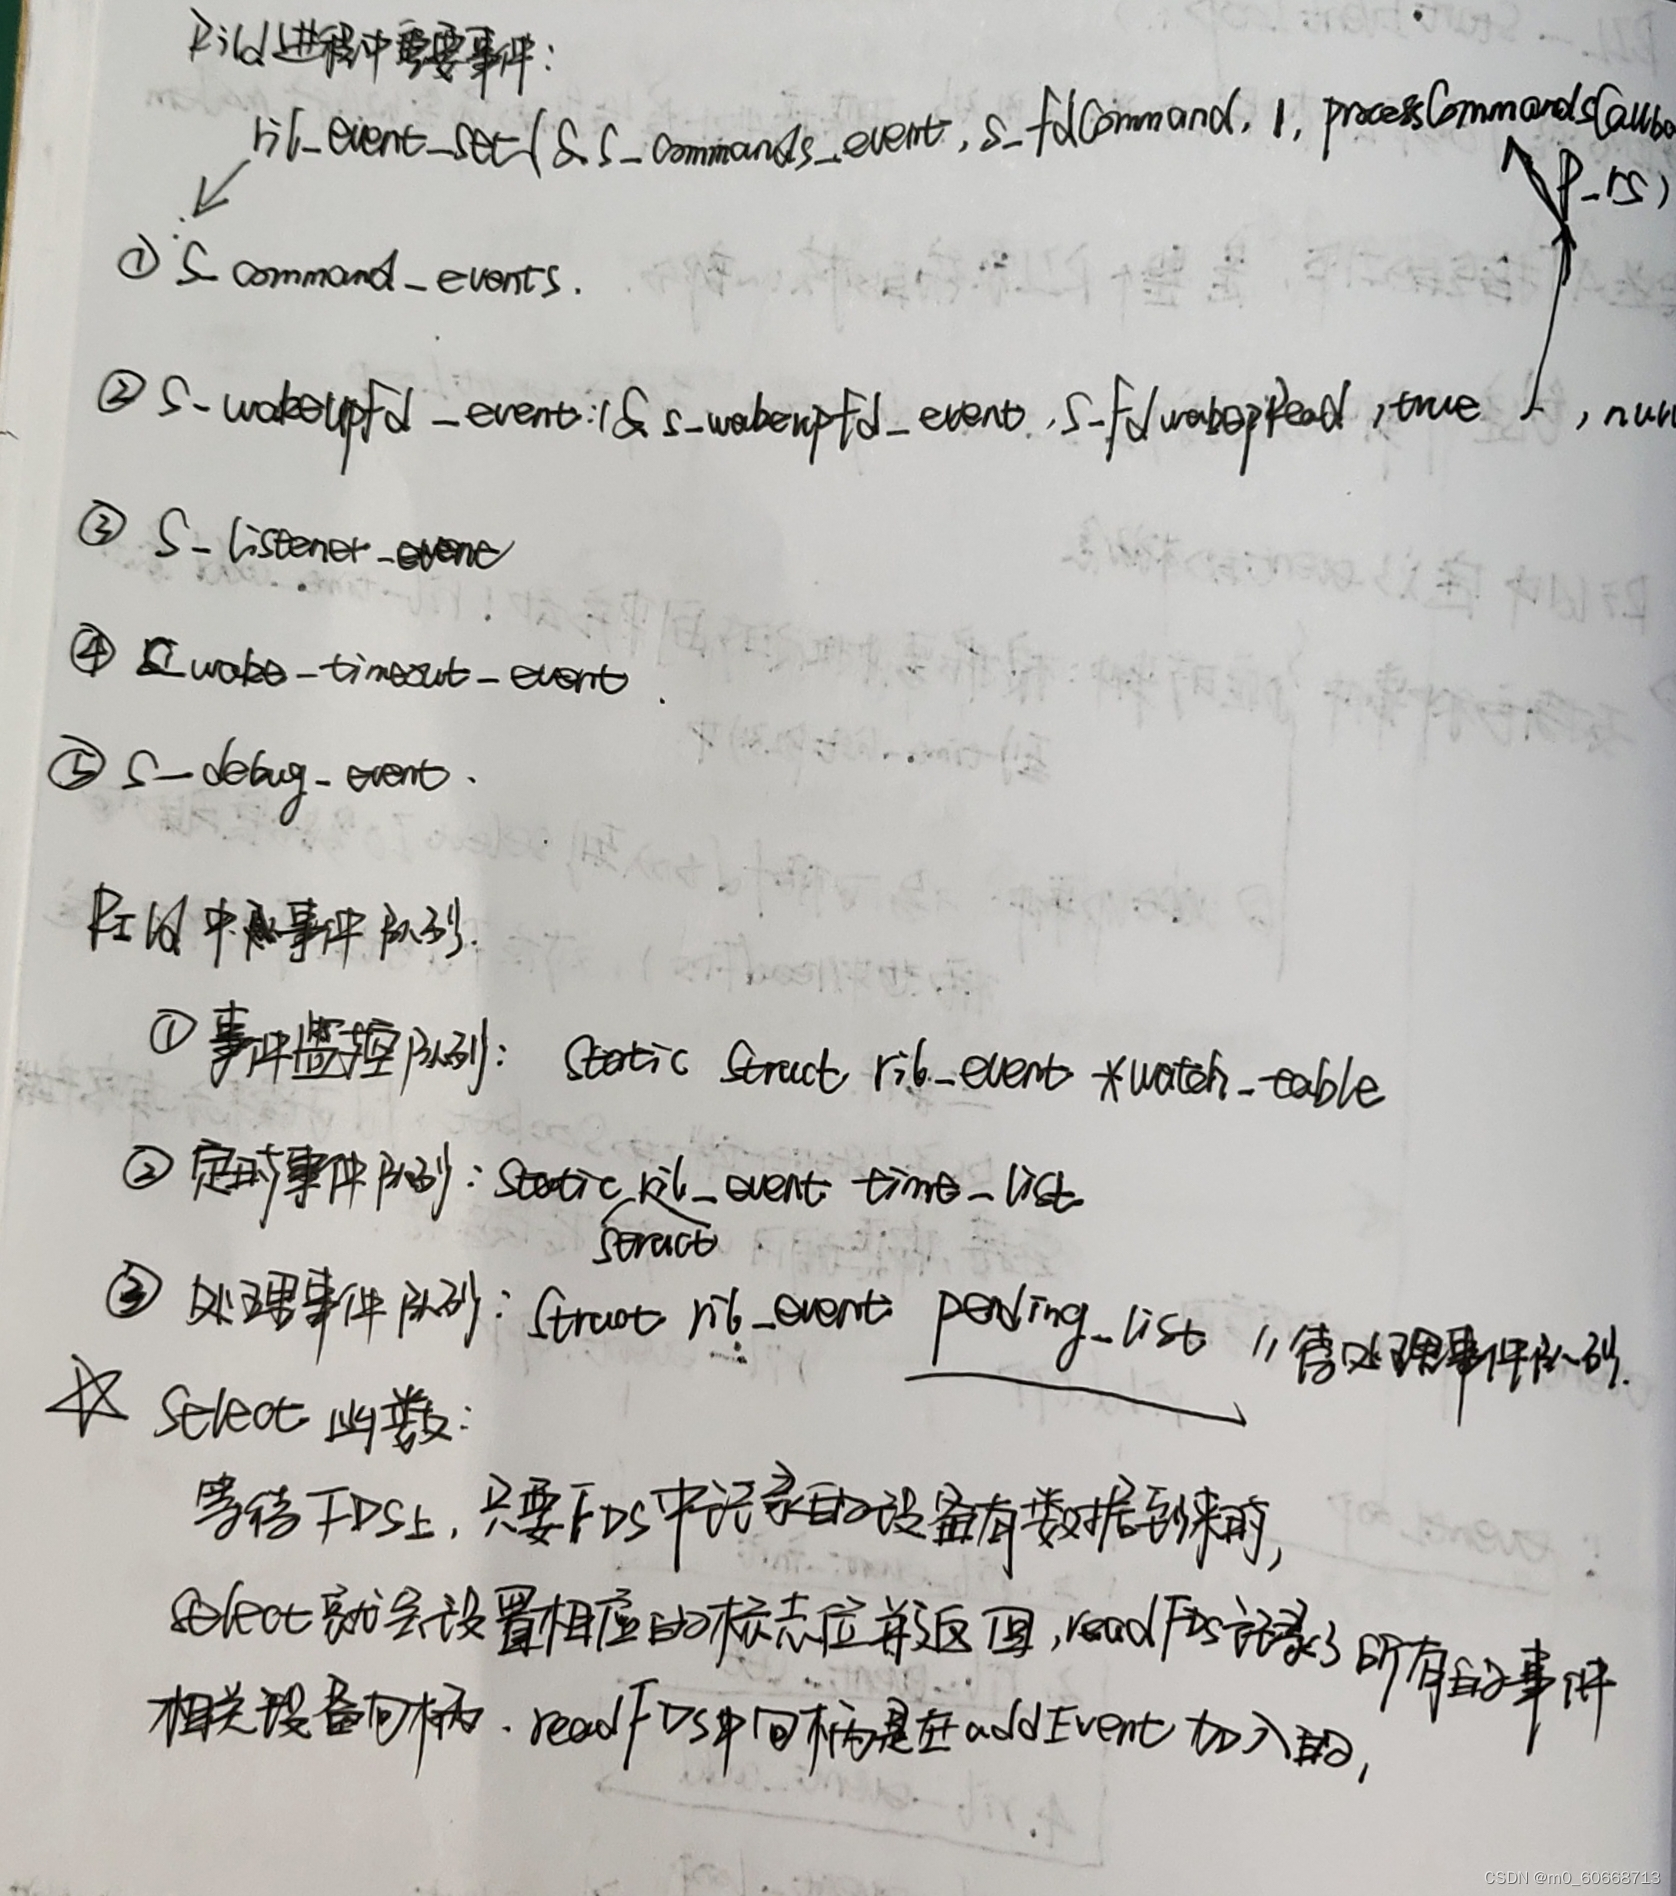 Rild进程中重要事件:
ril_event_set(&s_commands_event, s_fdCommand, 1, processCommandsCallba
p_rs)
① s_command_events.
② s_wakeupfd_event:(&s_wakeupfd_event, s_fdwakeupRead, true , nul
③ s_listener_event
④ s_wake_timeout_event.
⑤ s_debug_event.
RIld中 事件队列.
① 事件监控队列: static struct ril_event *watch_table
② 定时事件队列: static ril_event time_list
struct
③ 处理事件队列: struct ril_event pending_list //待处理事件队列.
☆ select 函数:
等待FDS上, 只要FDS中记录的设备有数据到来时,
select就会设置相应的标志位并返回, readFDS记录了所有的事件
相关设备句柄. readFDS中句柄是在addEvent加入的,
CSDN @m0_60668713